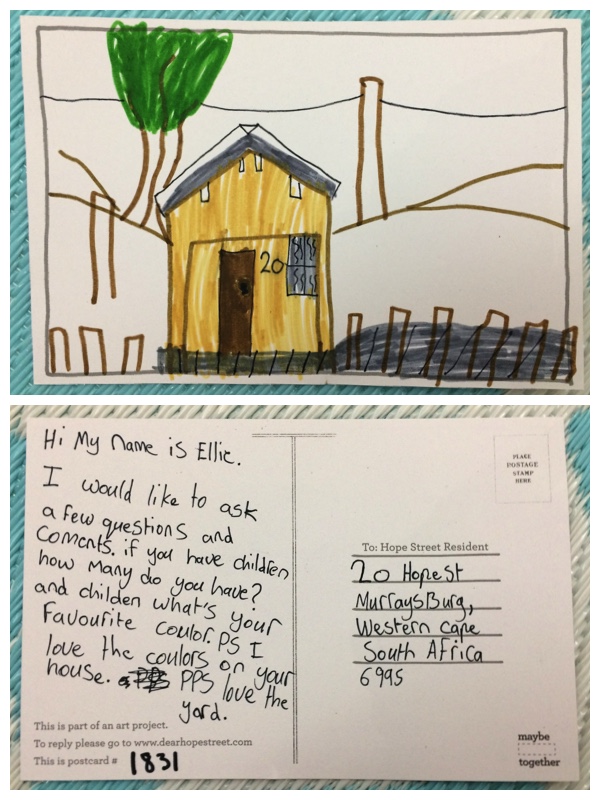 20
Hi My name is Ellie.
I would like to ask
a few questions and
coments. if you have children
how many do you have?
and childen what's your
Favourite coulor. PS I
love the coulors on your
house. PPS love the
yard.
This is part of an art project.
To reply please go to www.dearhopestreet.com
This is postcard # 1831
PLACE
POSTAGE
STAMP
HERE
To: Hope Street Resident
20 Hope st
MurraysBurg,
Western cape
South Africa
6995
maybe
together